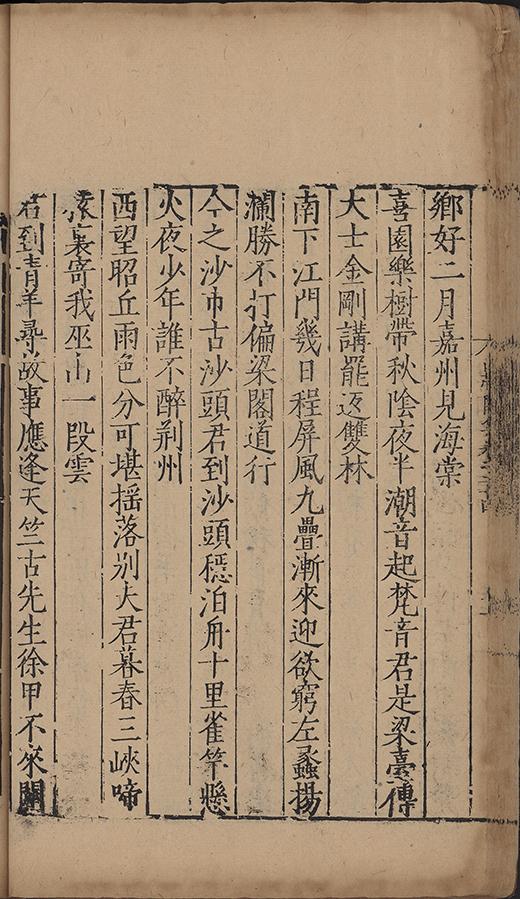 鄉好二月嘉州見海棠
喜園樂樹帶秋陰夜半潮音起梵音君是梁臺傅
大士金剛講罷返雙林
南下江門幾日程屏風九疊漸來迎欲窮左蠡揚
瀾勝不打偏梁閣道行
今之沙市古沙頭君到沙頭穩泊舟十里雀竿懸
火夜少年誰不醉荊州
西望昭丘雨色分可堪搖落別夫君暮春三峽啼
猿裏寄我巫山一段雲
若到青羊尋故事應逢天竺古先生徐甲不來關